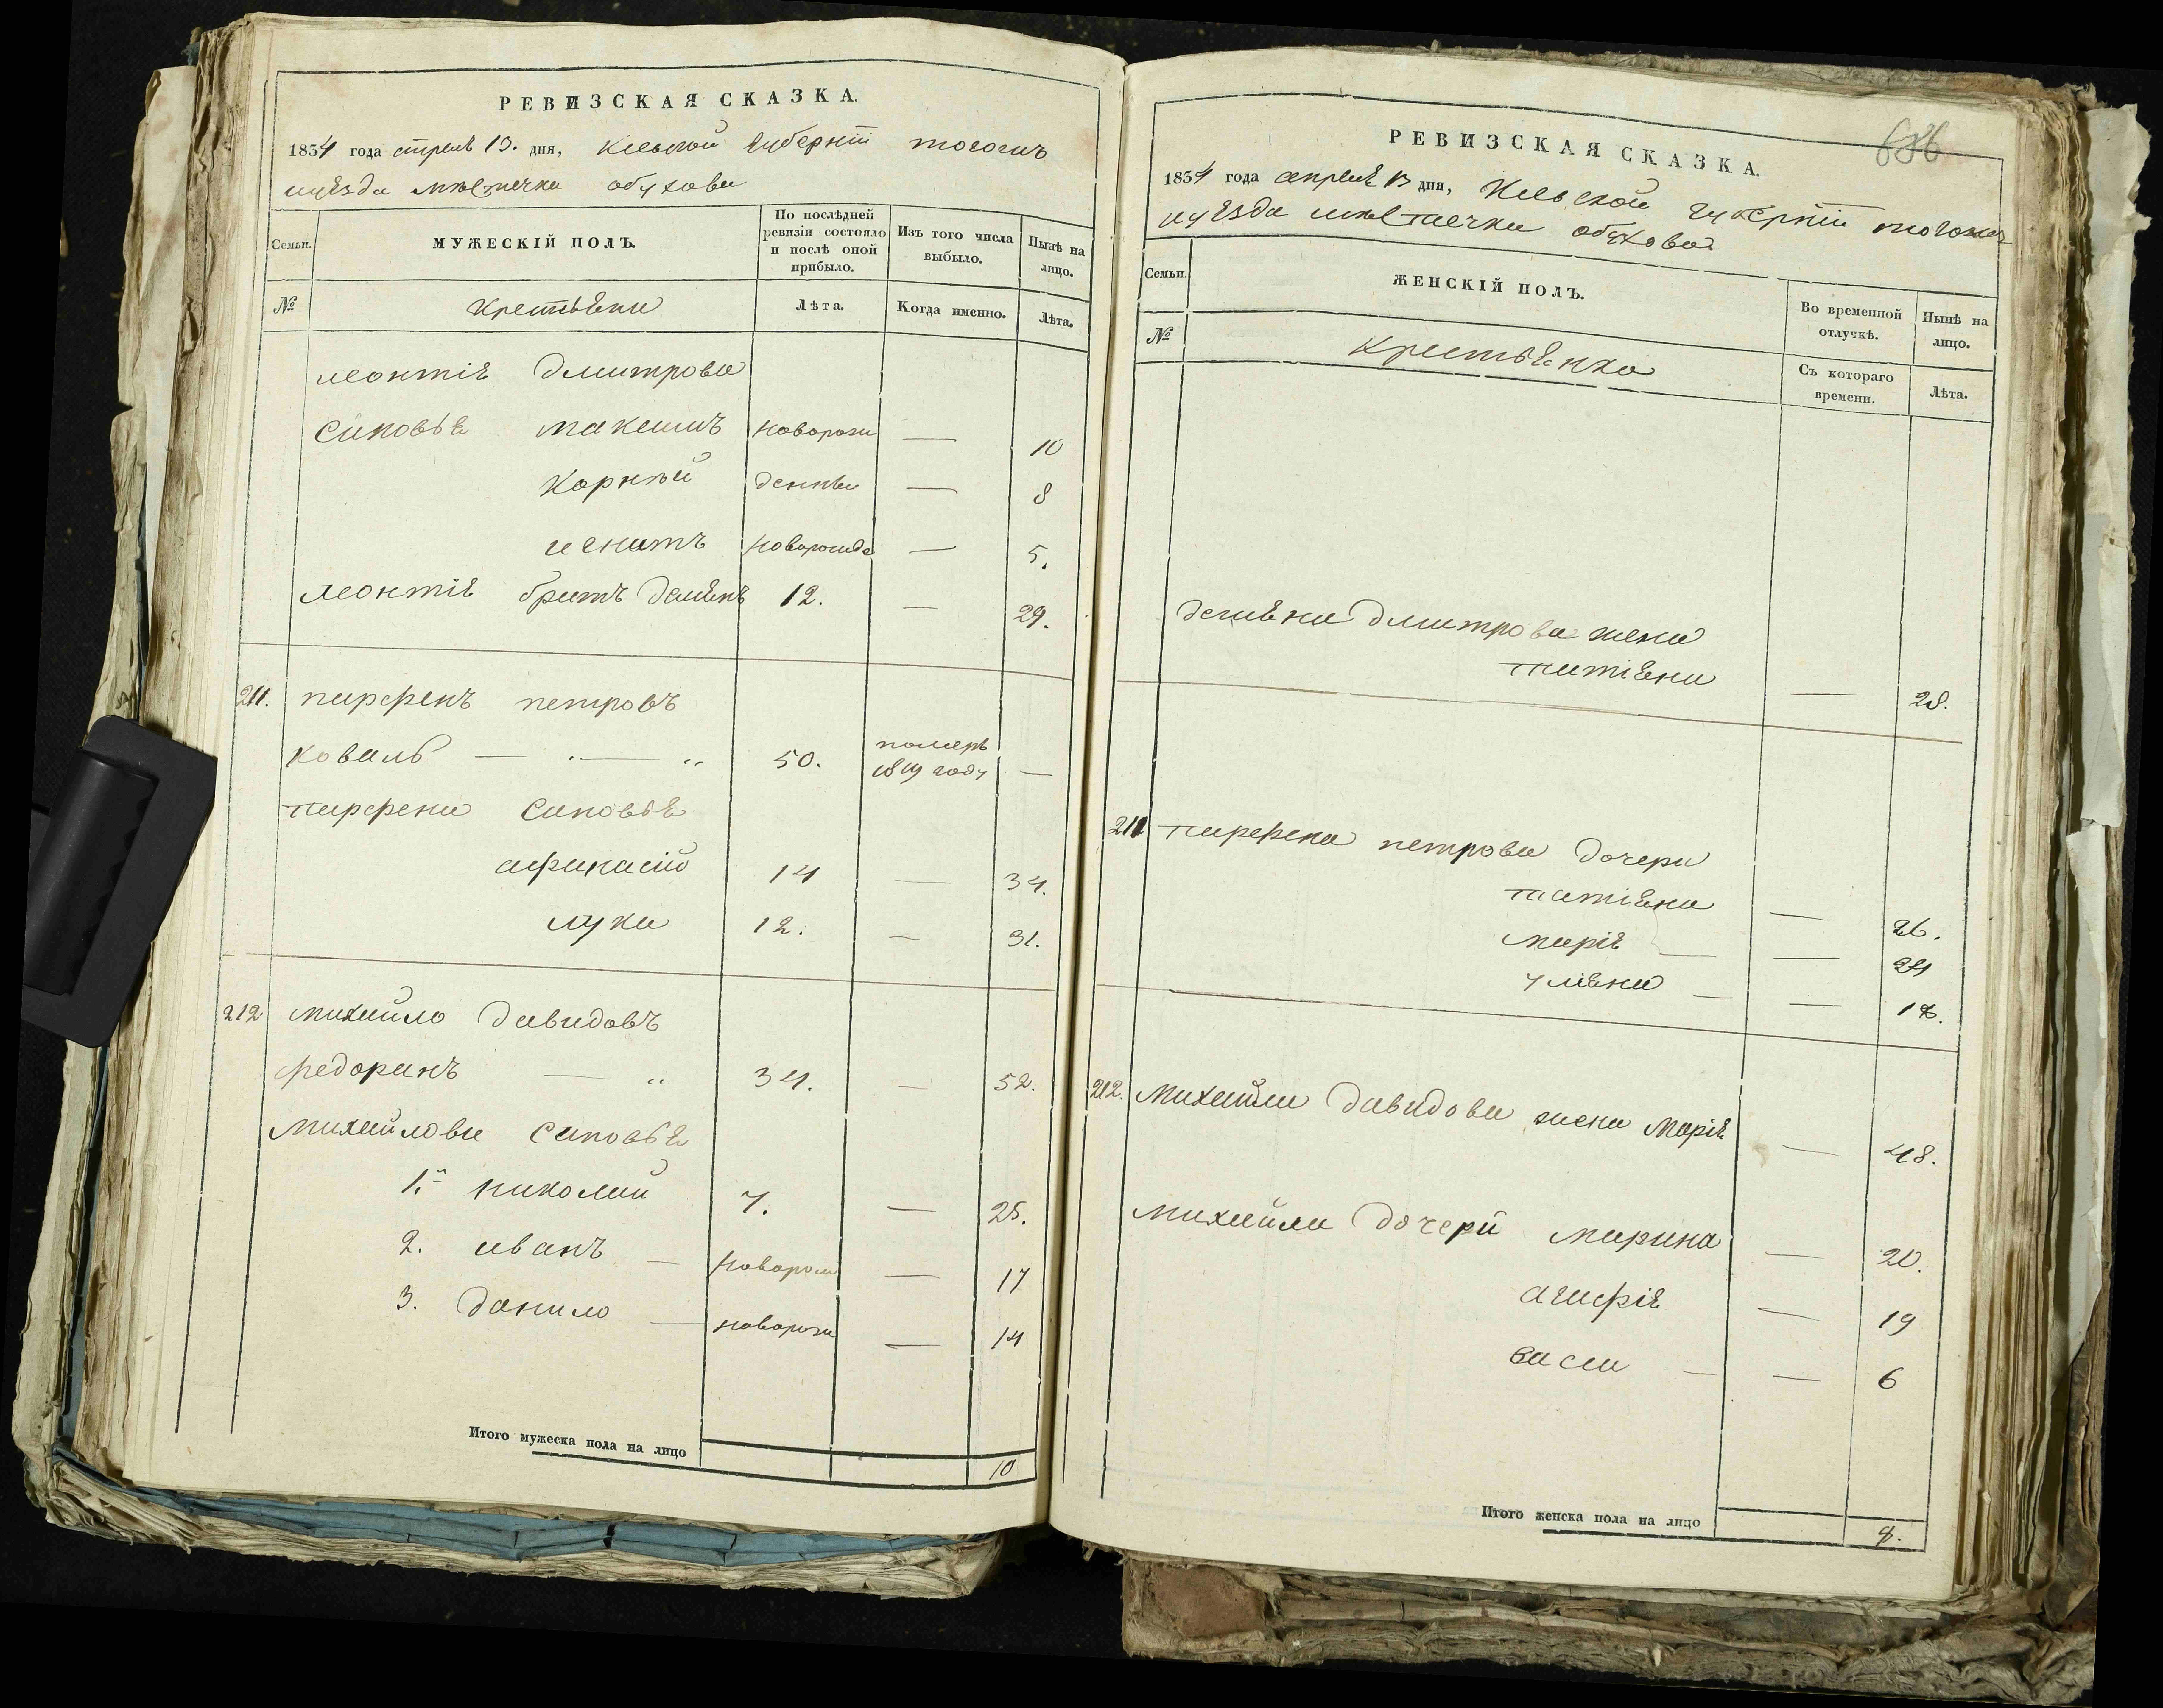 РЕВИЗСКАЯ СКАЗКА.
1834 года апреля 13. дня, Киевской губернiи тогожъ
уѣзда мѣстечка обухова
Семьи.
МУЖЕСКІЙ ПОЛЪ.
По послѣдней ревизіи состояло и послѣ оной прибыло.
Изъ того числа выбыло.
Нынѣ на лицо.
№
Лѣта.
Когда именно.
Лѣта.
леонтiя дмитрова
синовья максимъ новорож — 10
корнѣй — 8
игнатъ новорожде — 5.
леонтiя братъ демянъ 12. — 29.
211. парфенъ петровъ
коваль — . — „ 50. померъ 1819 году —
парфена синовья
афанасiй 14 — 34.
лука 12. — 31.
212 михайло давидовъ
федоринъ — „ 34. — 52.
михайлова синовья
1й николай 7. — 25.
2. иванъ — новорож — 17
3. данило — новорож — 14
Итого мужеска пола на лицо 10
686
РЕВИЗСКАЯ СКАЗКА.
1834 года апреля 13 дня, Киевской губернiи тогожъ
уѣзда мѣстечка обухова
Семьи.
ЖЕНСКІЙ ПОЛЪ.
Во временной отлучкѣ.
Нынѣ на лицо.
№
Съ котораго времени.
Лѣта.
демяна дмитрова жена
татiяна — 28.
211 парфена петрова дочери
татiяна — 26.
марiя — — 24
уляна — — 18.
212. михайла давидова жена марiя — 48.
михайла дочери марина — 20.
агафiя — 19
вася — — 6
Итого женска пола на лицо 8.